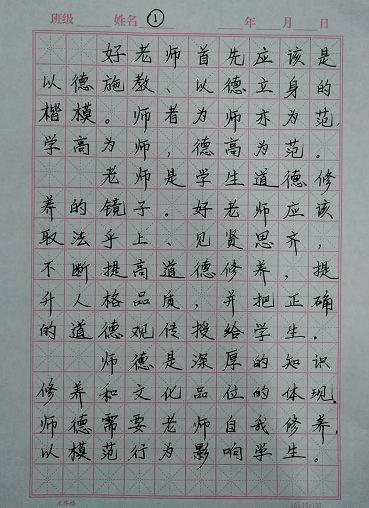 班级 姓名 ① 年 月 日
好老师首先应该是
以德施教、以德立身的
楷模。师者为师亦为范,
学高为师,德高为范。
老师是学生道德修
养的镜子。好老师应该
取法乎上、见贤思齐,
不断提高道德修养,提
升人格品质,并把正确
的道德观传授给学生。
师德是深厚的知识
修养和文化品位的体现。
师德需要老师自我修养,
以模范行为影响学生。